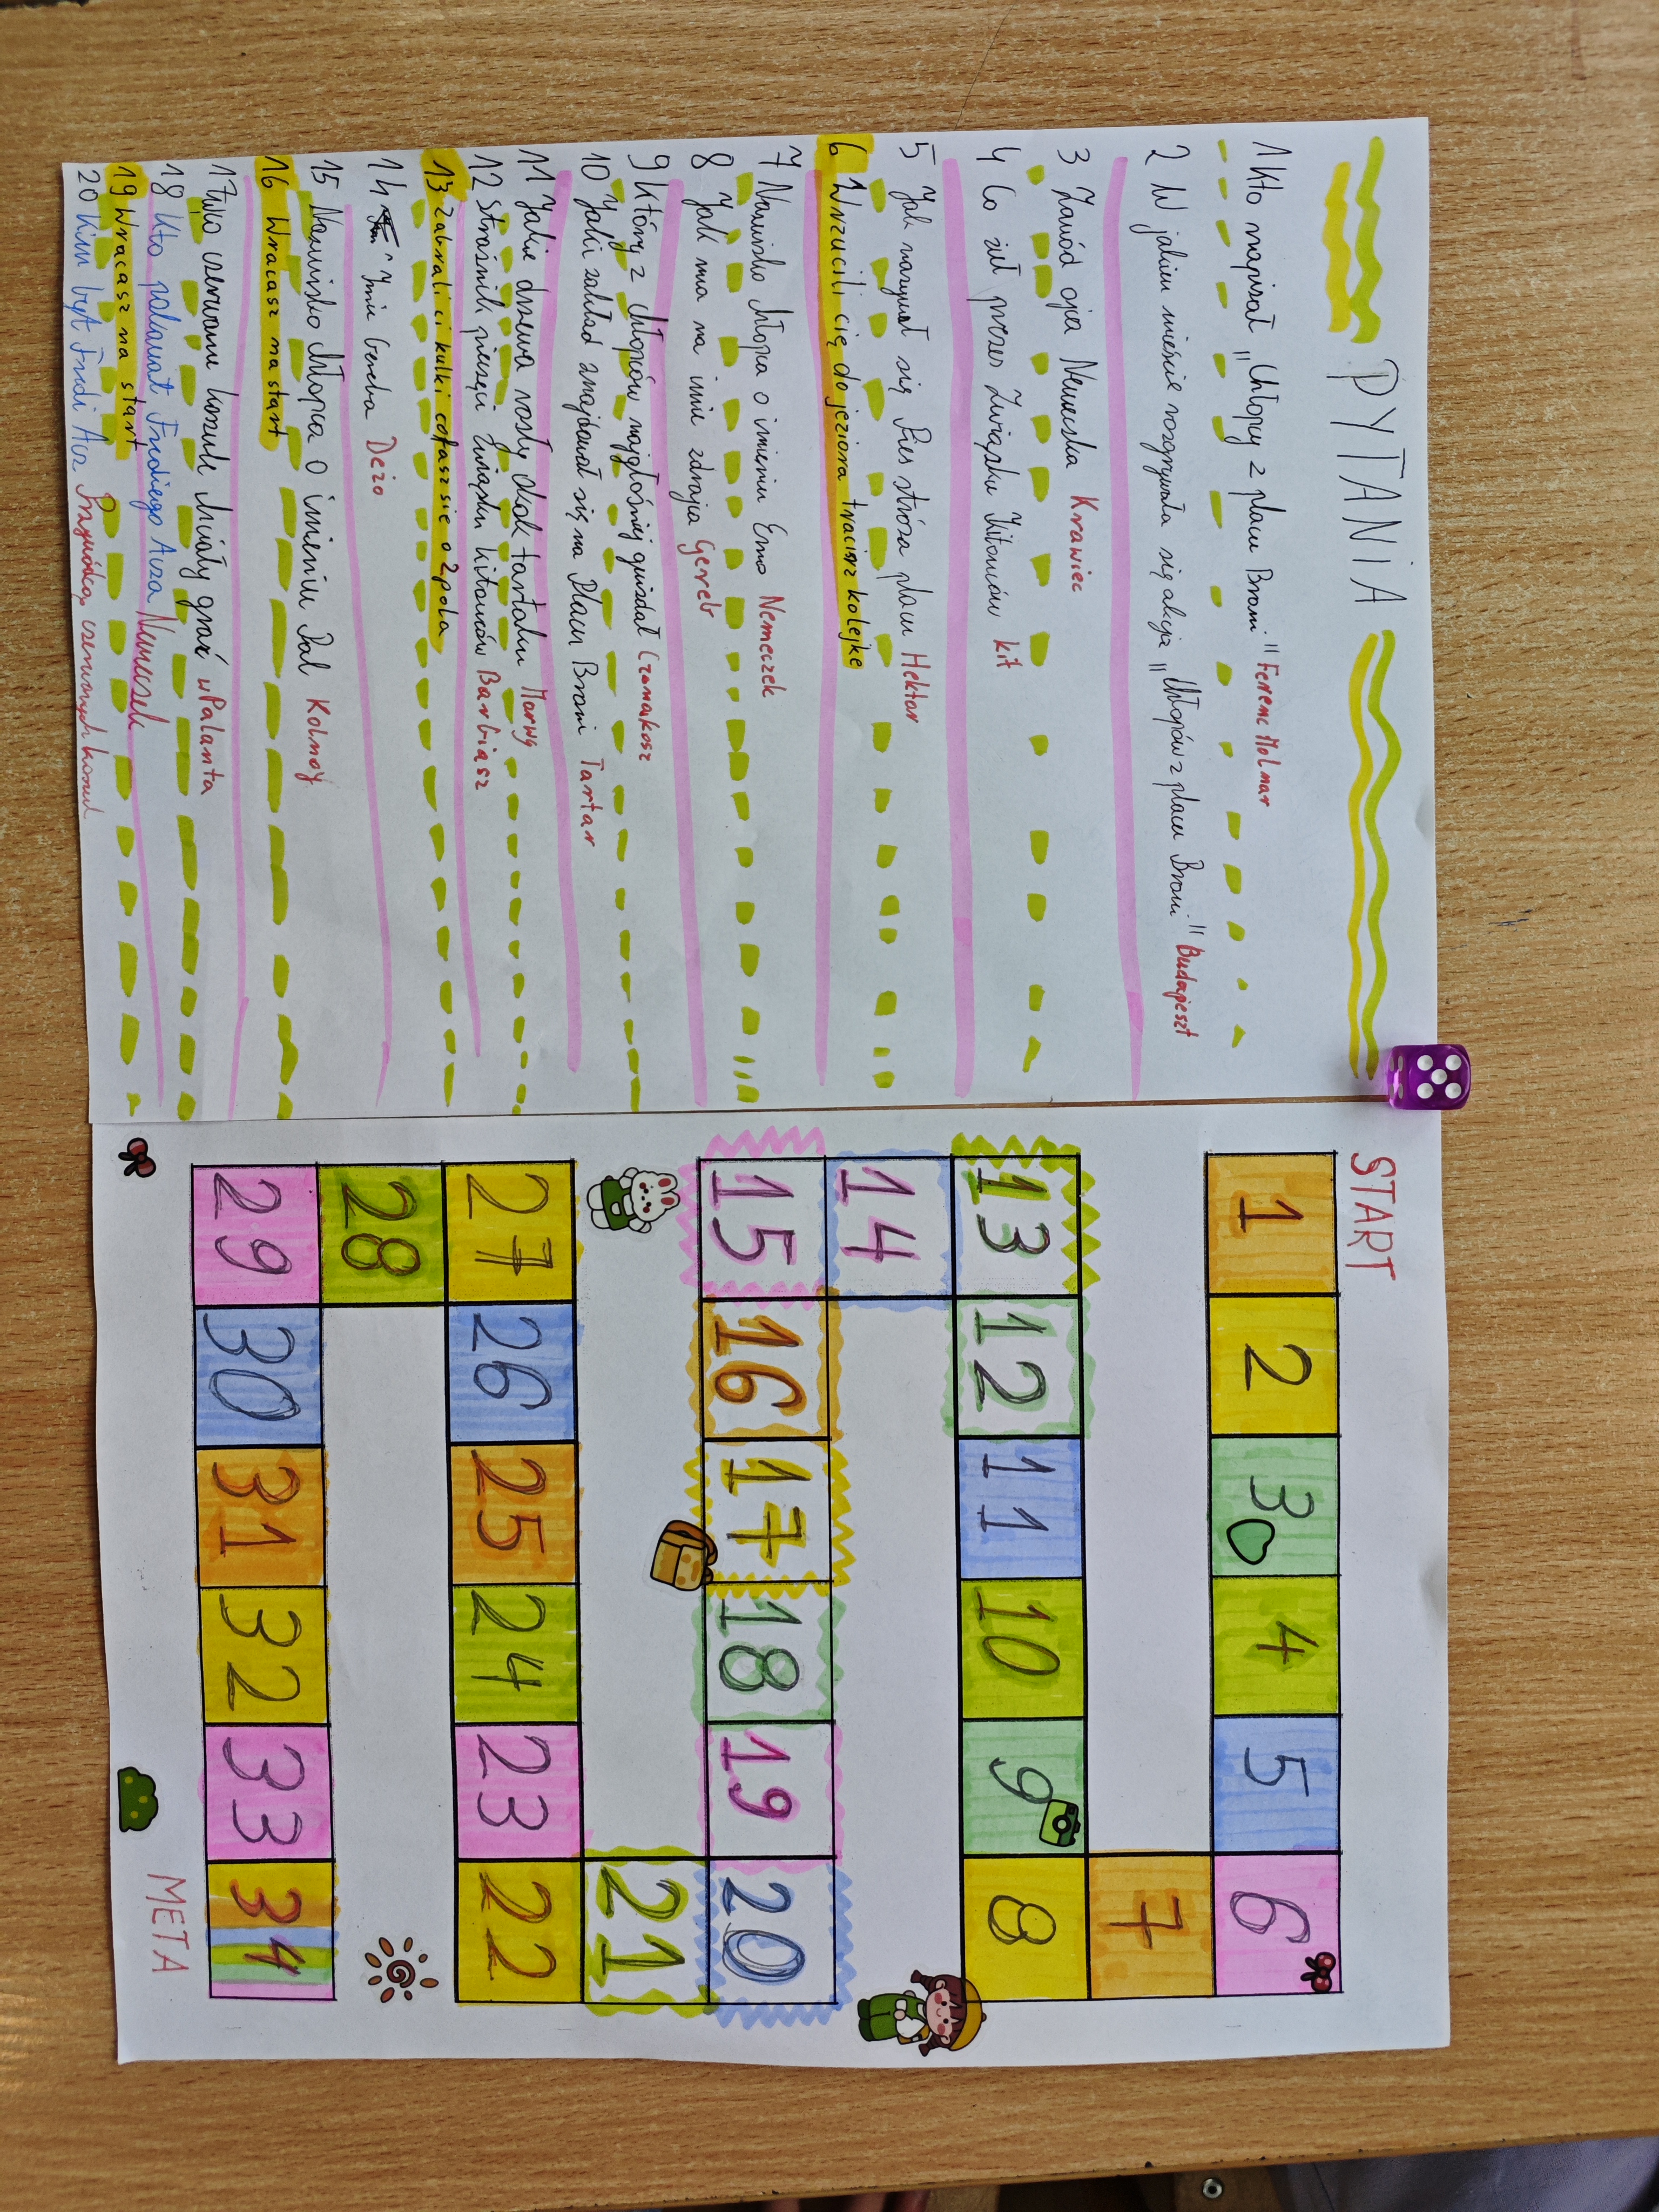 PYTANIA
1 Kto napisał „Chłopcy z placu Broni" Ferenc Molmar
2 W jakim mieście rozgrywała się akcja „Chłopców z placu Broni" Budapeszt
3 Zawód ojca Nemeczka Krawiec
4 Co żuł prezes Związku Kitowców kit
5 Jak nazywał się Pies stróża placu Hektor
6 Wrzucili cię do jeziora tracisz kolejke
7 Nazwisko chłopca o imieniu Erno Nemeczek
8 Jak ma na imie zdrajca Gereb
9 Który z chłopców najgłośniej gwizdał Czonakosz
10 Jaki zakład znajdował się na Placu Broni Tartar
11 Jakie drzewa rosły obok tartaku Morwy
12 Strażnik pieczęci Związku kitowców Barbiasz
13 zabrali ci kulki cofasz sie o 2 pola
14 Imie Gereba Deżo
15 Nazwisko chłopca o imieniu Pal Kolnay
16 Wracasz na start
17 w co czerwone koszule chciały grać w Palanta
18 Kto pokonał Frediego Acza Nemeczek
19 Wracasz na start
20 Kim był Fredi Acz Przywódcą czerwonych koszul
START
1 2 3 4 5 6
7
13 12 11 10 9 8
14
15 16 17 18 19 20
21
27 26 25 24 23 22
28
29 30 31 32 33 34
META